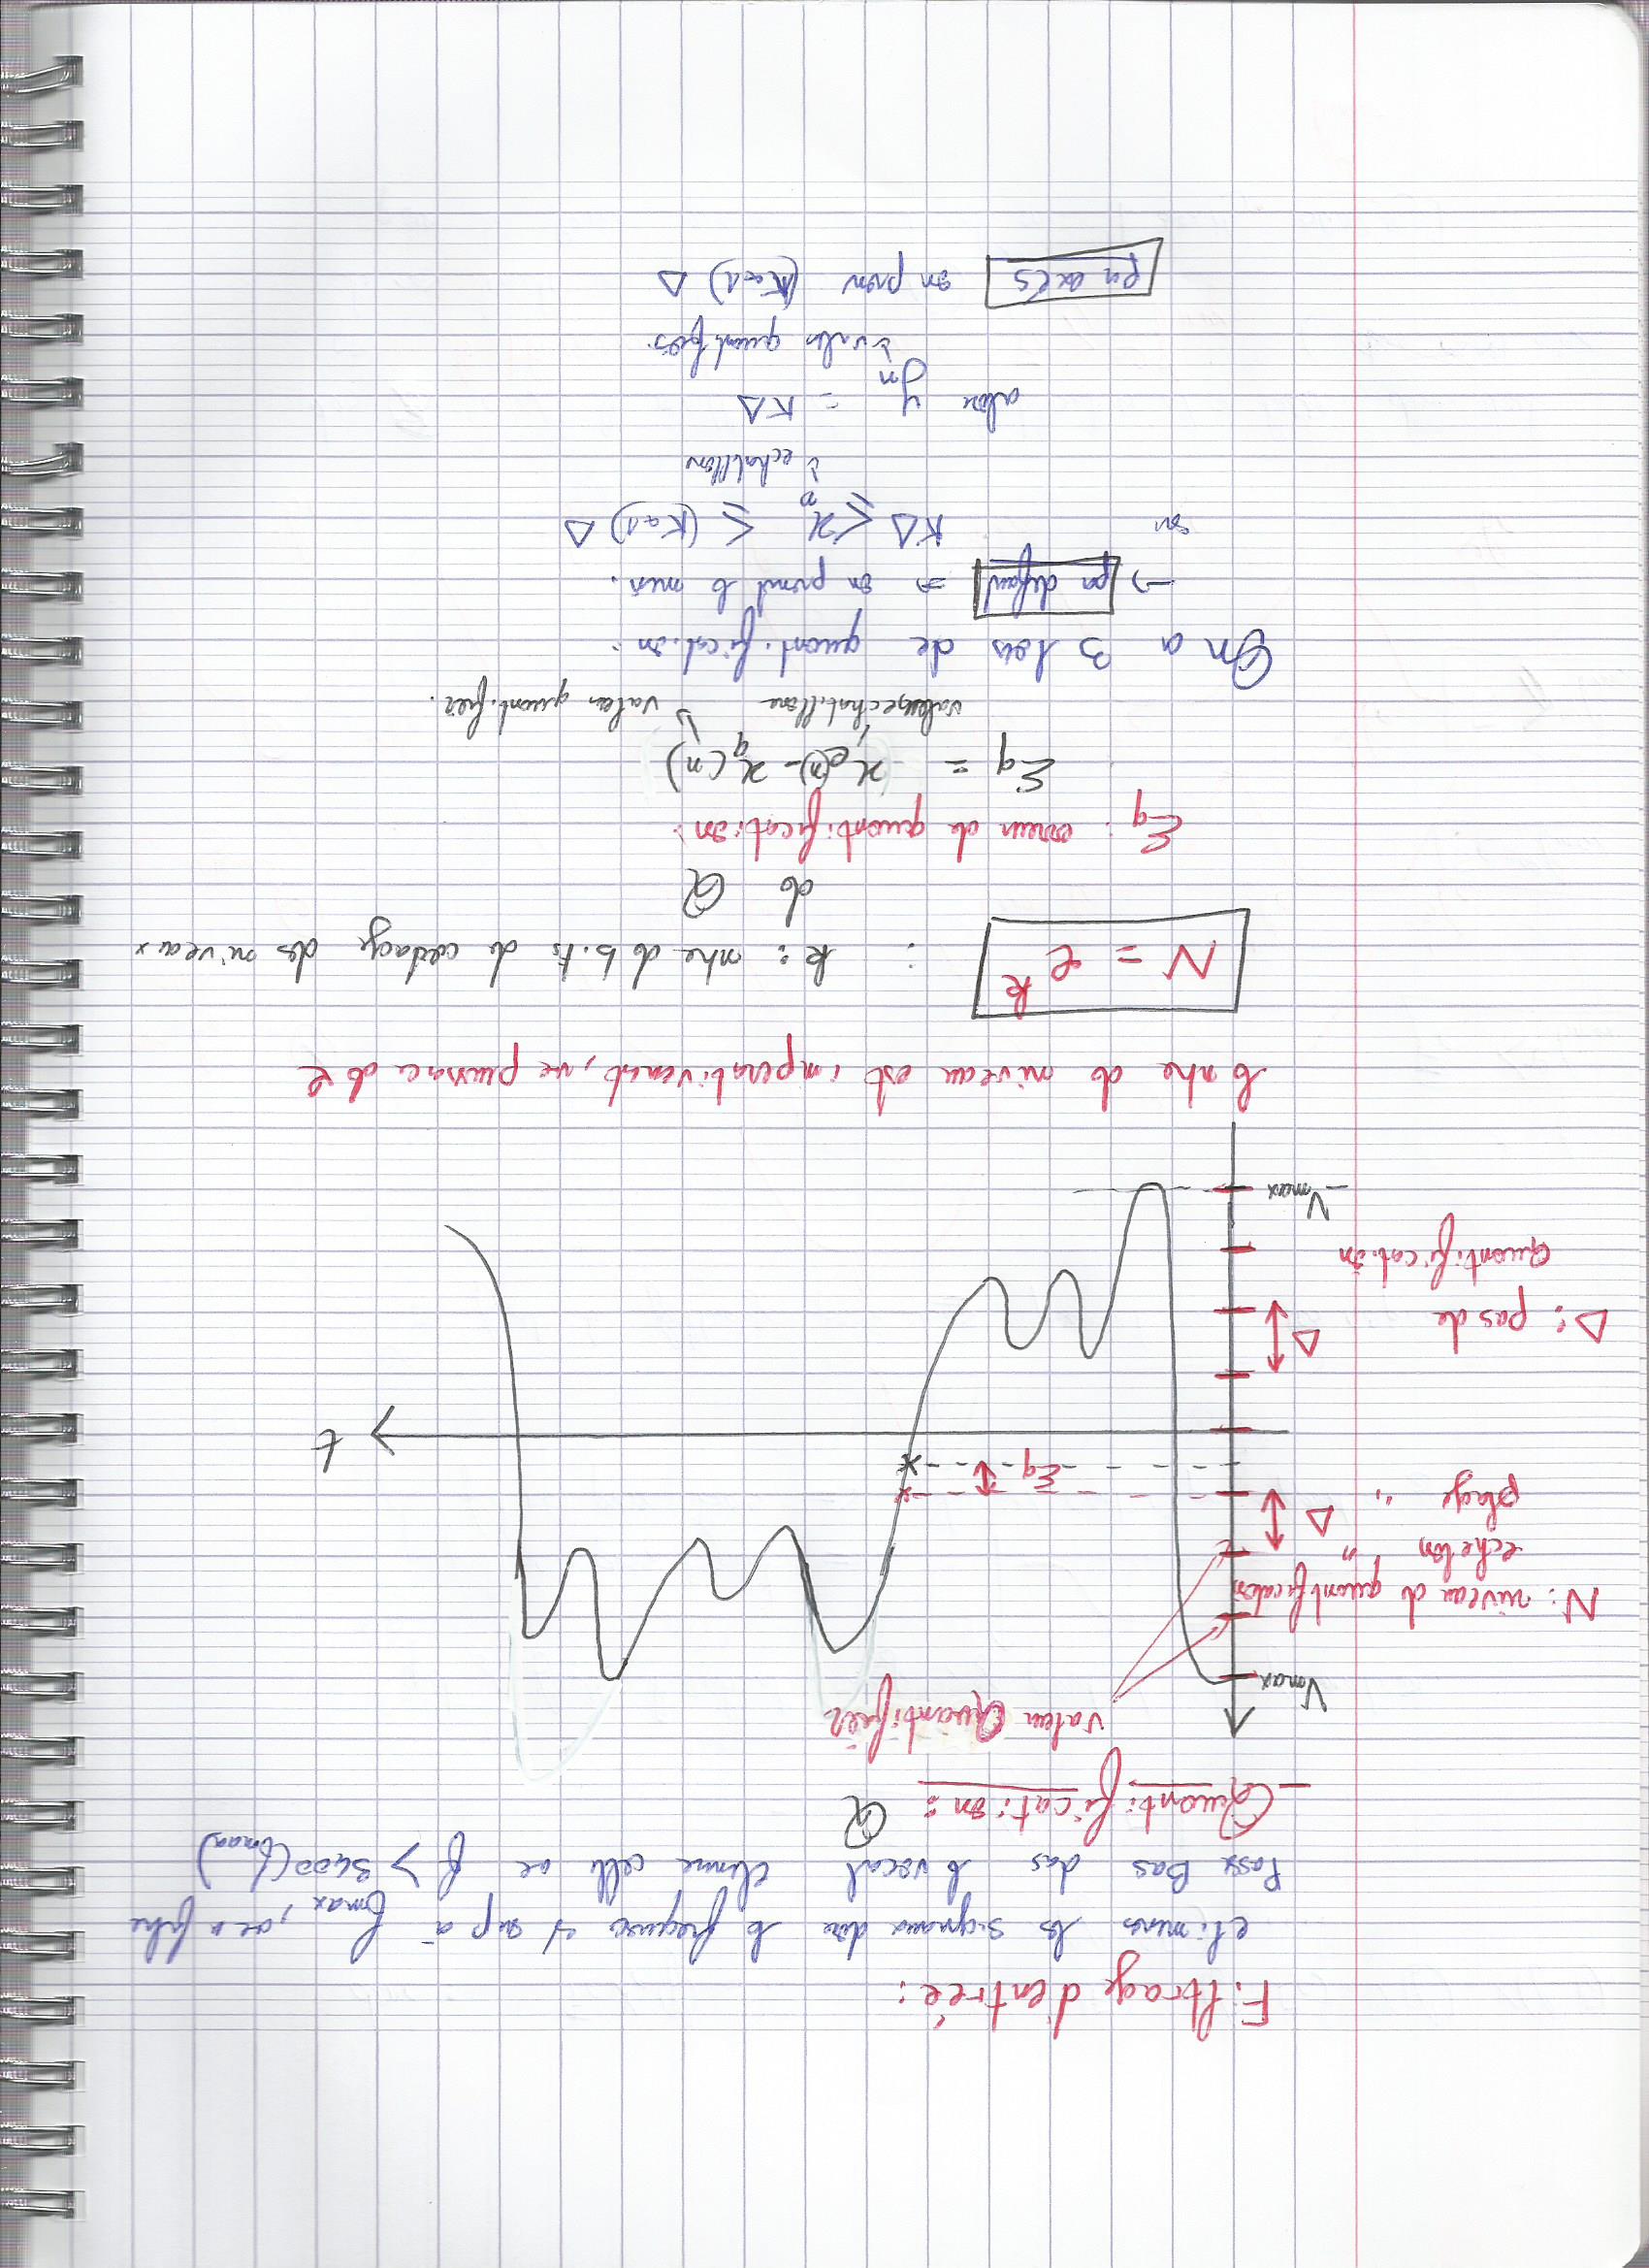 Filtrage d'entrée :
eliminer les signaux dont la frequence est sup a fmax, avec un filtre
Passe Bas dans le vocal elimine celle ac f > 3400 (fmax)
- Quantification : Q
valeur Quantifiee
Vmax
N : niveau de quantification
echelon "
plage "
Δ
Eq
t
Δ : pas de
Quantification
Δ
- Vmax
le nbre de niveau est imperativement, une puissance de 2
N = 2^k : k : nbre de bits de codage des niveaux
de Q
Eq : erreur de quantification :
Eq = xe(n) - xq(n)
valeur echantillone valeur quantifiee.
On a 3 lois de quantification :
→ par defaut ⇒ on prend le min.
KΔ ≤ xn ≤ (K+1) Δ
echantillon
alors yn = KΔ
valeur quantifiee
par exces on prend (K+1) Δ